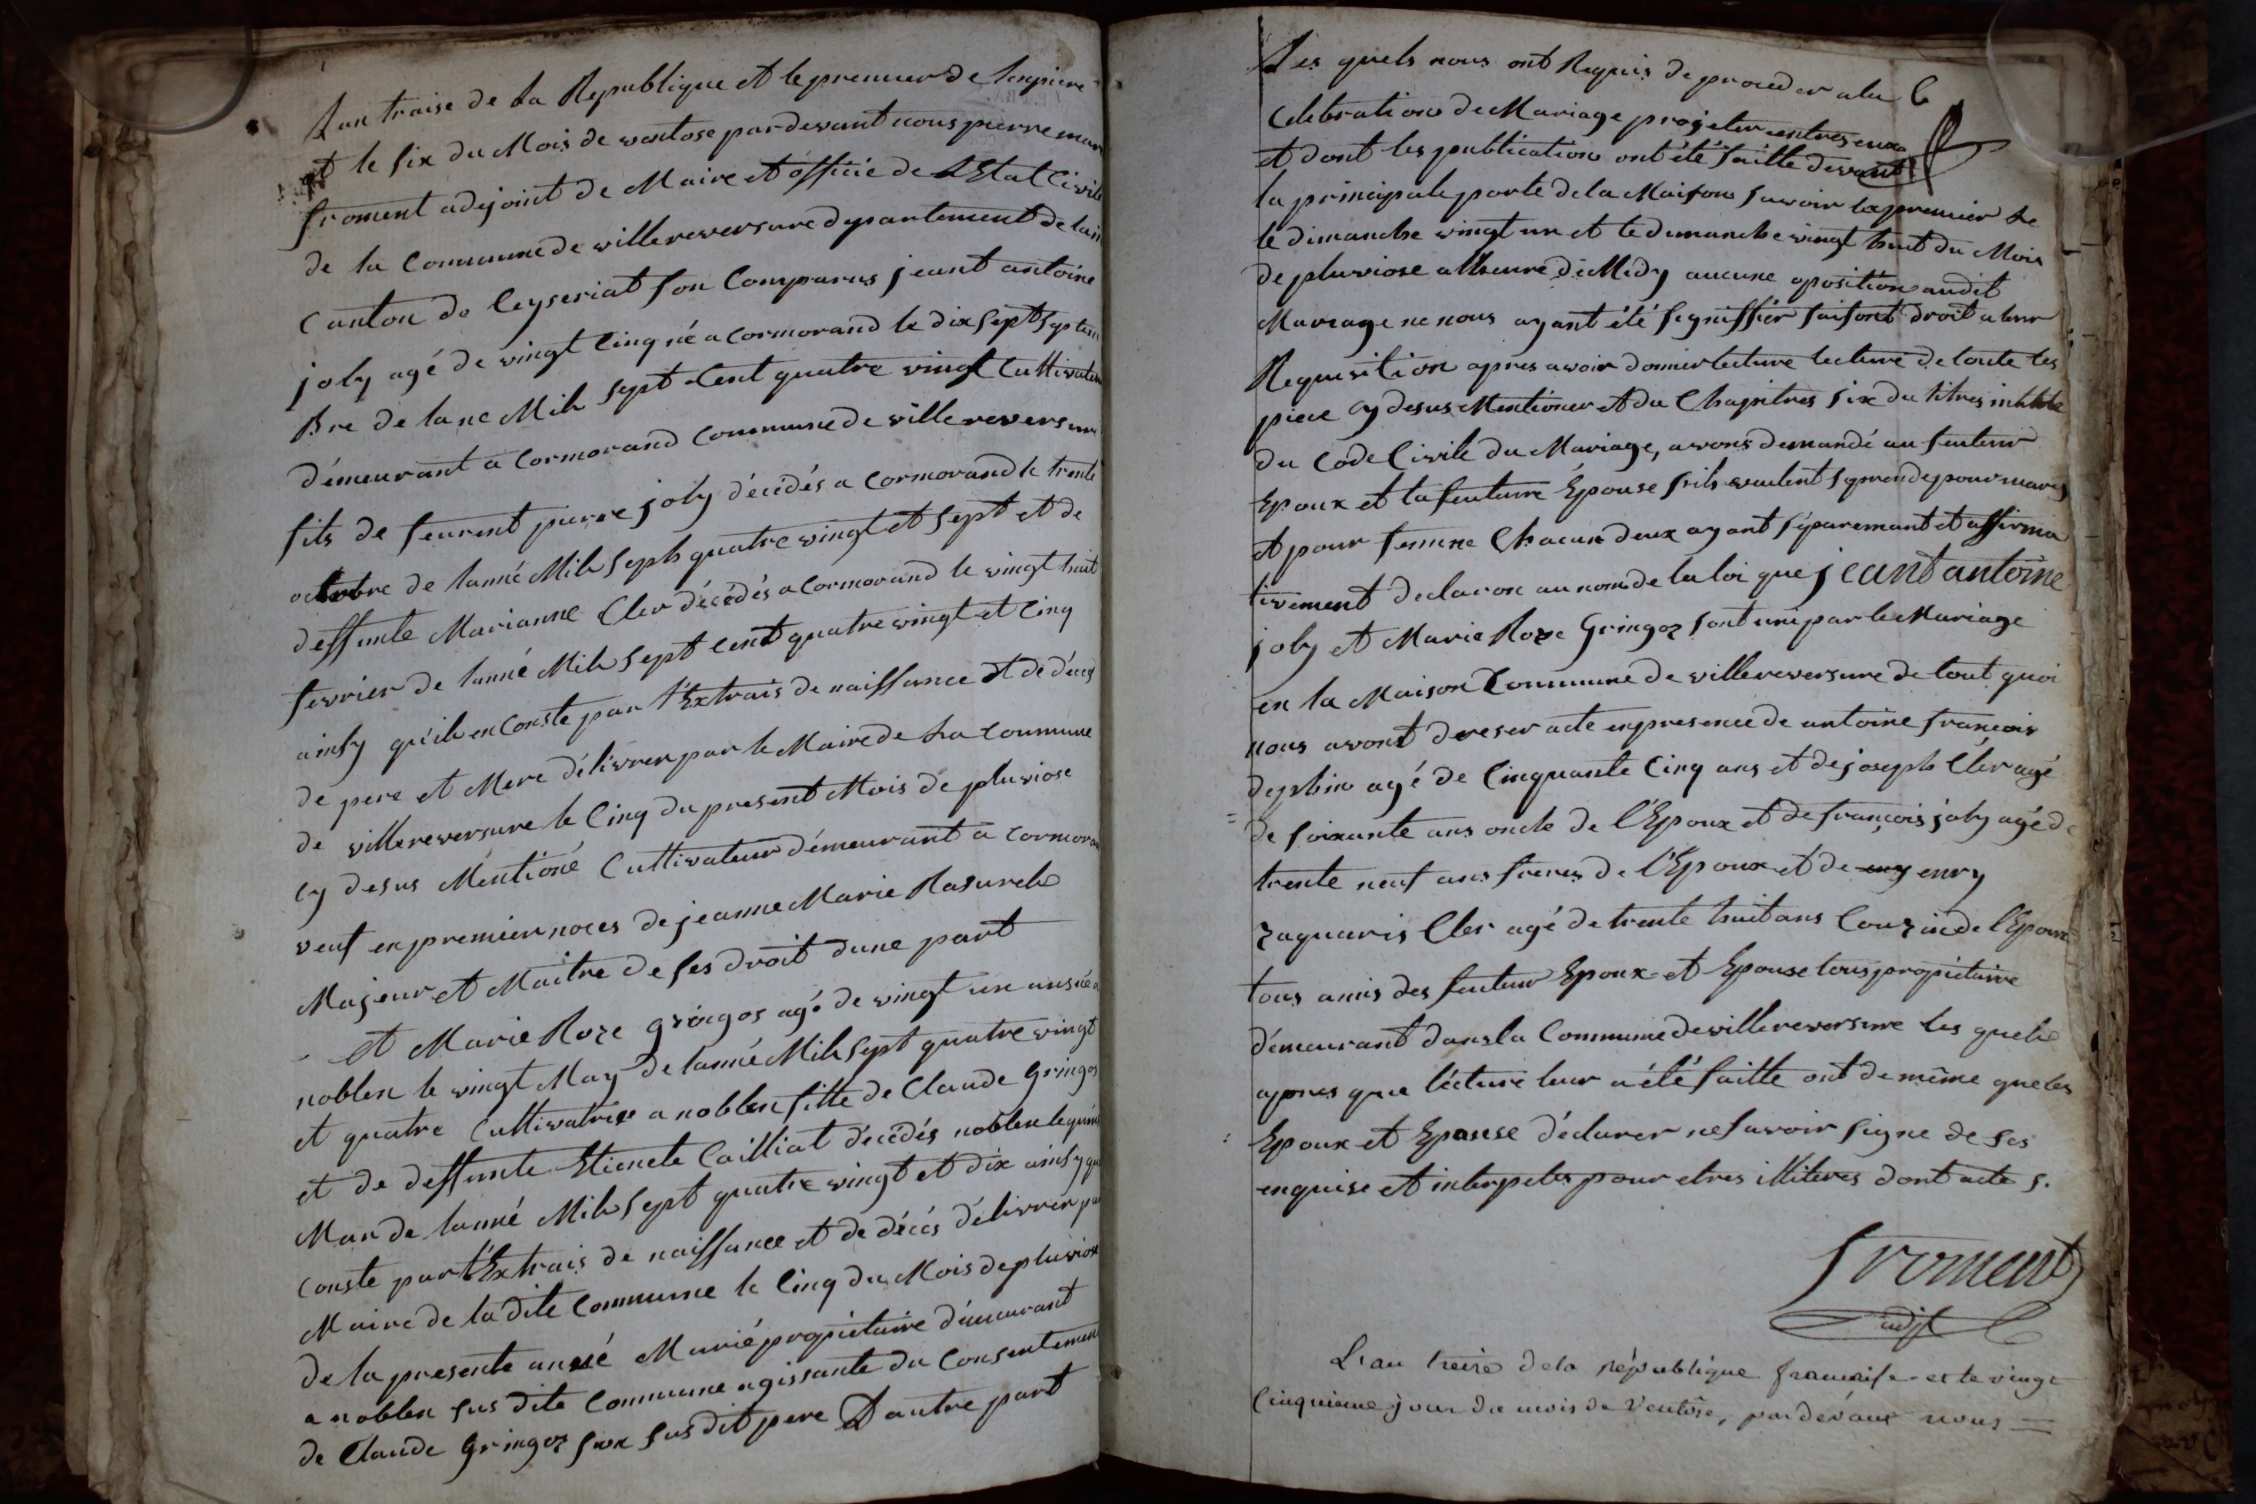 Lan traise de La Republique et le premier de lempiere
et le six du Mois de ventose pardevant nous pierre mar
froment adejoint de Maire et officié de LEtat Civile
de la Commune de villereversure departement de lain
Canton de Ceyseriat son Comparus jeant antoine
joly agé de vingt Cinq né a Cormorand le dix sept septem
bre de lane Mih sept Cent quatre vingt Cultivateur
démeurant a Cormorand Commune de villereversure
fits de feurent pierre joly décédés a Cormorand le trente
octobre de lanné Mih seph quatre vingt et sept et de
deffunte Marianne Cler décédés a Cormorand le vingt huit
fevrier de lanné Mih sept cent quatre vingt et Cinq
ainsy quih en Conste par l'Extrais de naissance et de déces
de pere et Mere délivrer par le Maire de La Commune
de villereversure le Cinq du present Mois de pluviose
Cy desus Méntioné Cultivateur démeurant a Cormoran
veuf en premier noces de jeanne Marie Rasurel
Majeur et Maitre de ses droit dune part
et Marie Roze gringos agé de vingt un ans né a
noblen le vingt May de lanné Mih sept quatre vingt
et quatre Cultivatrise a noblen fille de Claude Gringos
et de deffunte Etienete Cailliat décédés noblen le quinse
Mar de lanné Mih sept quatre vingt et dix ainsy qu
Conste part l'Extrais de naissance et de décés délivrer par
Maire de la dite Commune le Cinq du Mois de pluviose
de la presente année Marié propietaire démeurant
a noblen sus dite Commune agissante du Consentement
de Claude Gringoz son sus dit pere Dautre part
Les quels nous ont Requis de proceder a la C
Celebration de Mariage projeter entres eux
et dont les publication ont été faitte devant
la principale porte de la Maison savoir la premier le
le dimanche vingt un et le dimanche vingt huit du Mois
de pluviose a lheure de Midy aucune oposition audit
Mariage ne nous ayant été signiffier faisont droit a leur
Requisition apres avoir donner lecture lecture de toute les
piece Cy desus Mentioner et du Chapitres six du titres intitule
du Code Civile du Mariage, avons demandé au feuteur
Epoux et la feuteure Épouse sils veulent sprendre pour mary
et pour femme Chacun deux ayant séparemant et affirma
tivement declaron au nom de la loi que jeant antoine
joly et Marie Roze Gringoz sont uni par le Mariage
en la Maison Commune de villereversure de tout quoi
nous avont dreser acte en presence de antoine françois
dephin agé de Cinquante Cinq ans et de joseph Cler agé
de soixante ans oncle de l'Epoux et de françois joly agé de
trente neuf ans freres de l'Epoux et de enry
zaquaris Cler agé de trente huit ans Couzin de l'Epoux
tous amis des feuteur Epoux et Epouse tous propietaire
démeurant dans la Commune de villereversure les quels
apres que lécture leur a été faitte ont de même que les
Epoux et Epouse déclarer ne savoir signe de ses
enquise et interpeles pour etres illiteres dont acte s.
froment
adjt
L'an treize de la république francaise et le vingt
Cinquieme jour du mois de Ventôse, pardévant nous =